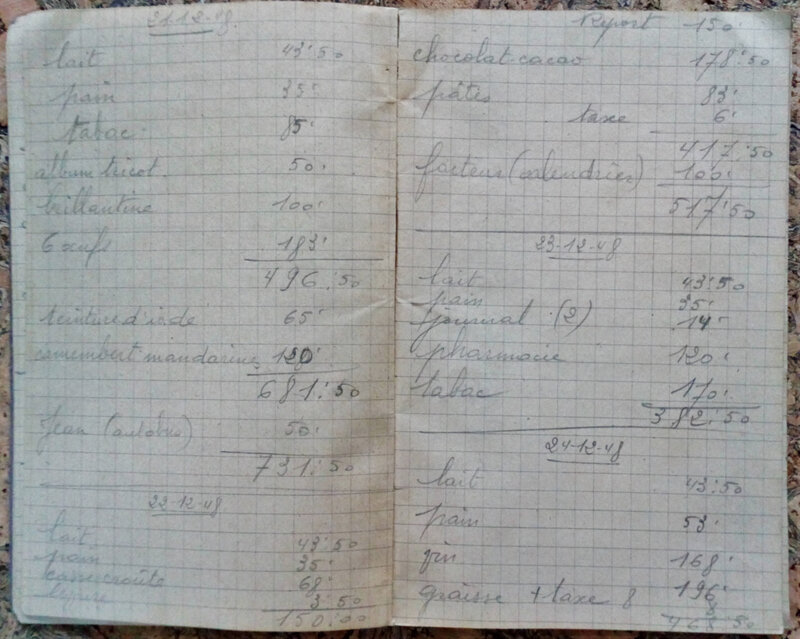 21-12-48.
lait 43.50
pain 35.
tabac. 85.
album tricot. 50.
brillantine 100.
6 œufs 183.
496.50
teinture d'inde 65.
camembert mandarines 120.
681.50
Jean (autobus) 50.
731.50
22-12-48
lait 43.50
pain 35.
casse croûte 68.
levure 3.50
150.00
Report 150.
chocolat-cacao 178.50
pâtes 83.
taxe 6.
417.50
facteur (calendrier) 100.
517.50
23-12-48
lait 43.50
pain 35.
journal (2) 14.
pharmacie 120.
tabac 170.
382.50
24-12-48
lait 43.50
pain 53.
168.
graisse + taxe 8 196.
8
468.50